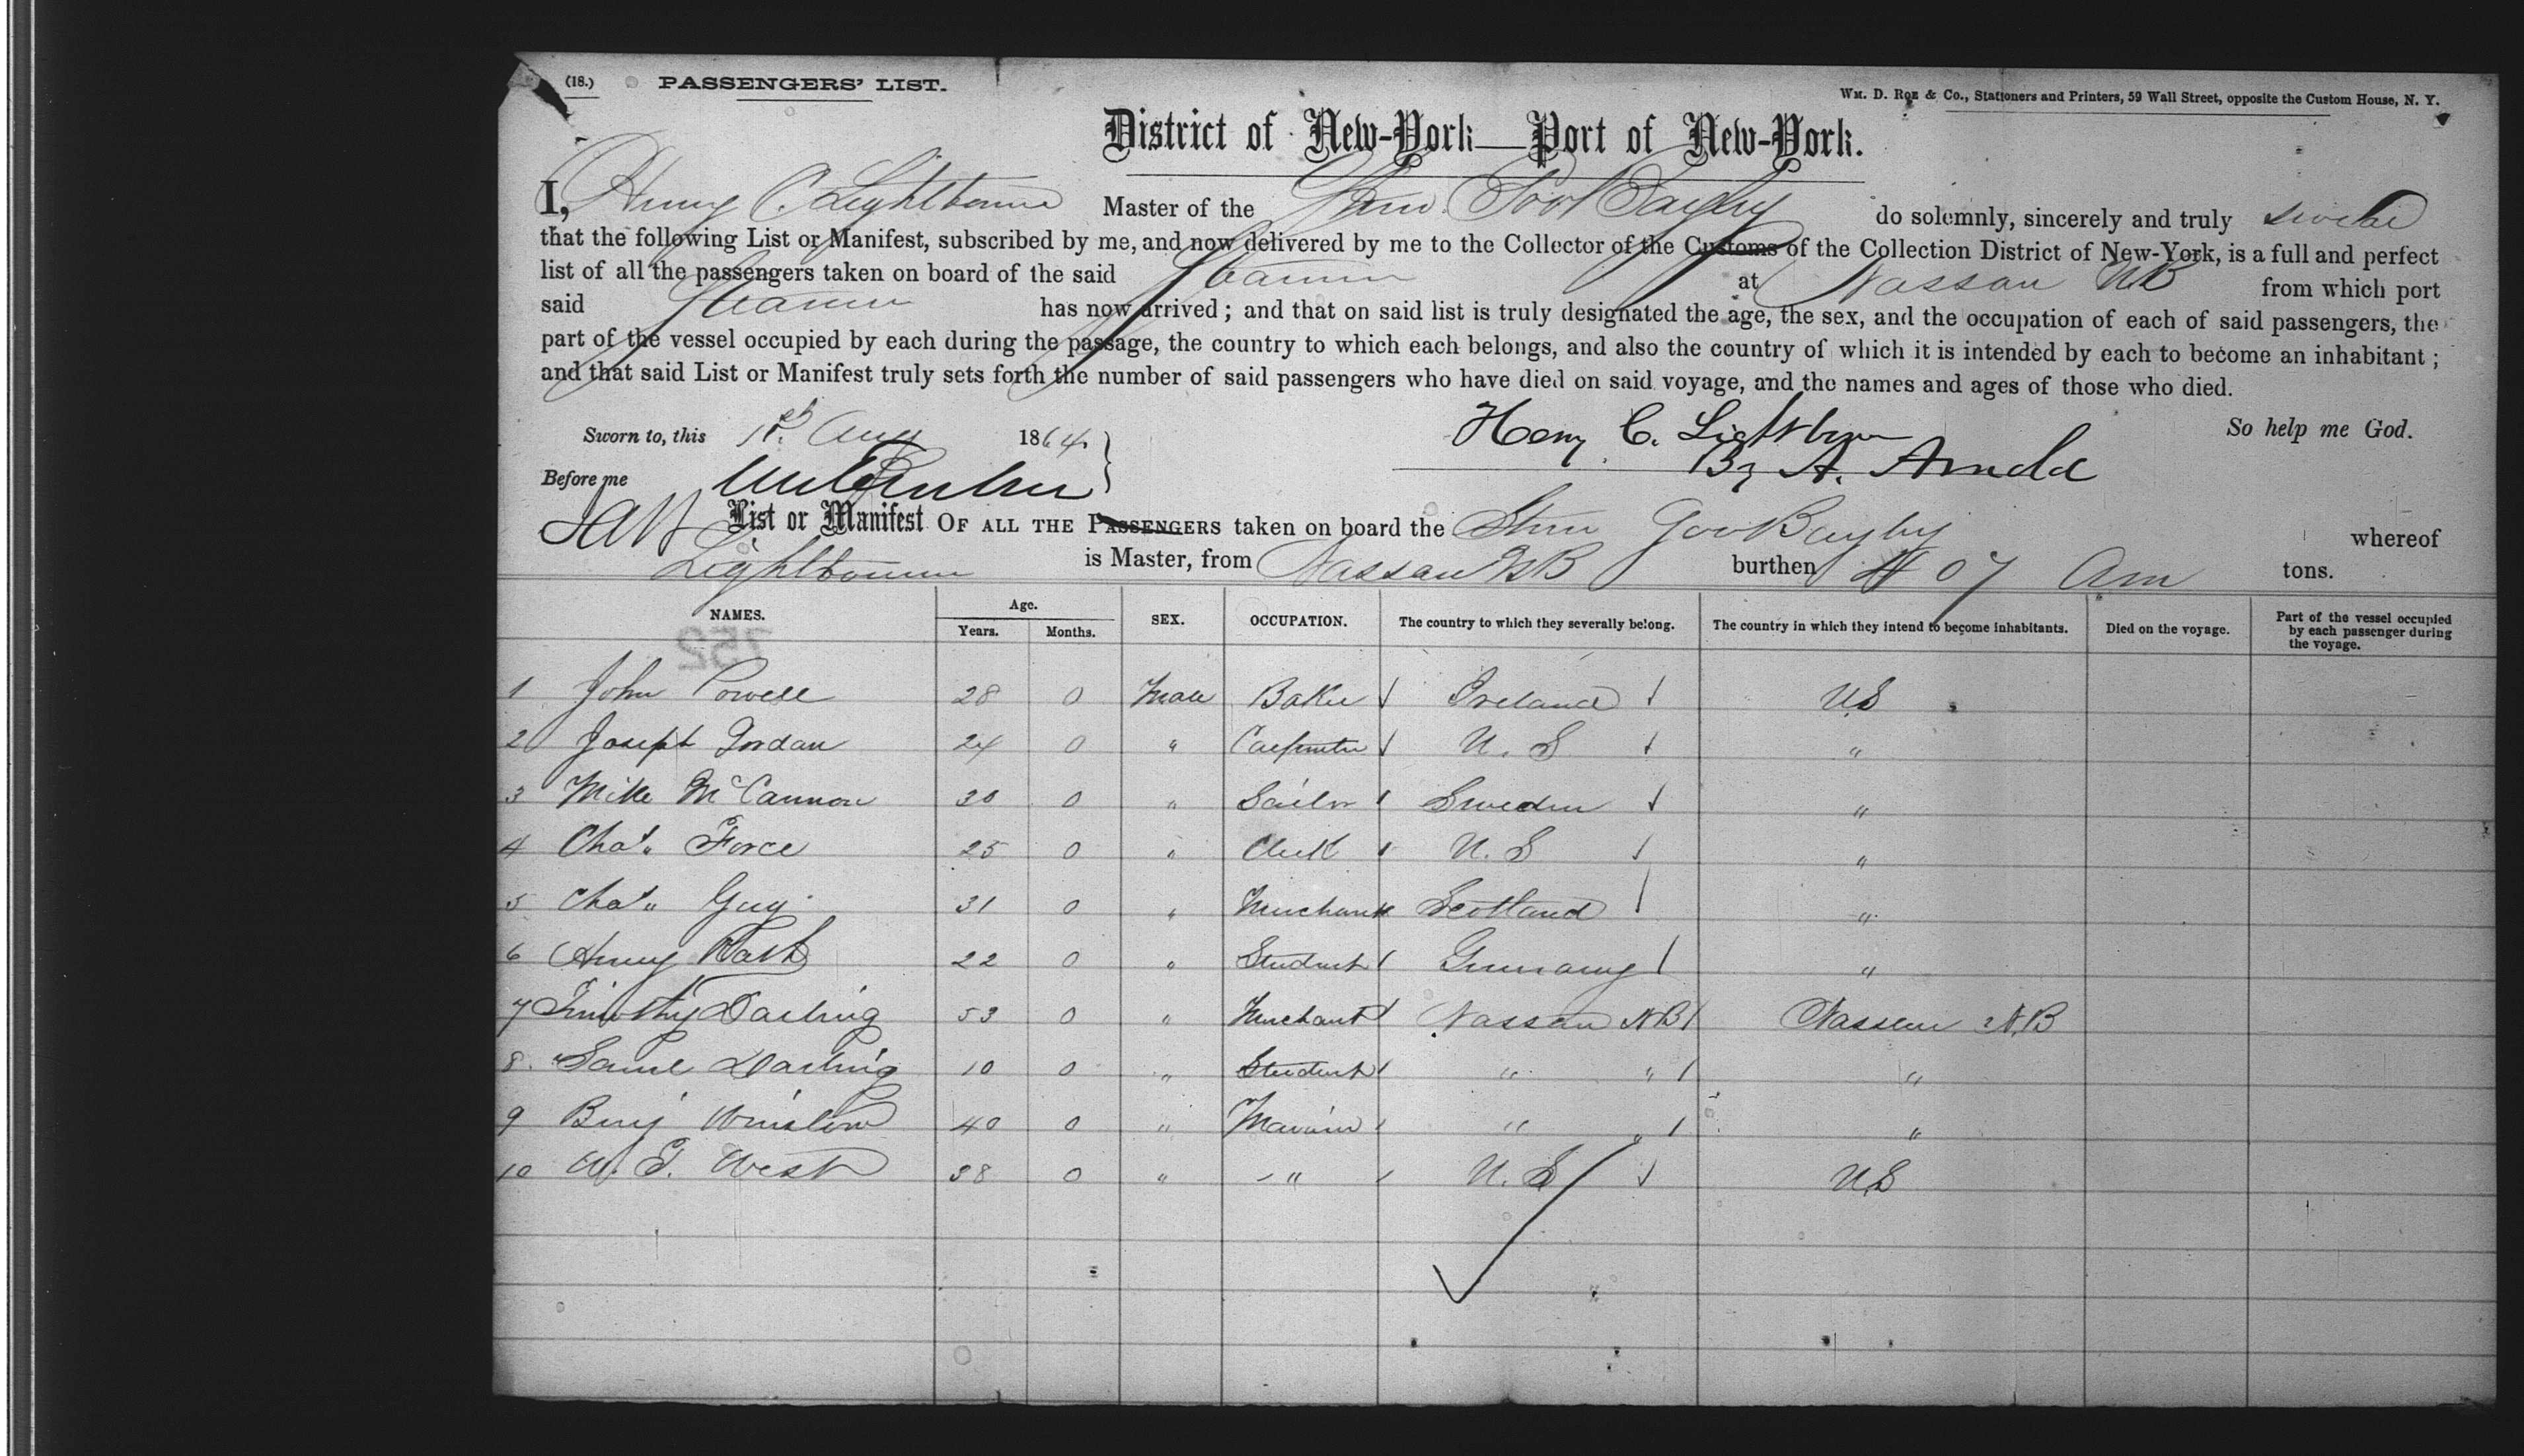 (18.) PASSENGERS' LIST.
WM. D. ROE & Co., Stationers and Printers, 59 Wall Street, opposite the Custom House, N. Y.
District of New-York—Port of New-York.
I, Henry C. Lightbourne Master of the do solemnly, sincerely and truly swear
that the following List or Manifest, subscribed by me, and now delivered by me to the Collector of the Customs of the Collection District of New-York, is a full and perfect
list of all the passengers taken on board of the said Steamer at Nassau NB from which port
said Steamer has now arrived; and that on said list is truly designated the age, the sex, and the occupation of each of said passengers, the
part of the vessel occupied by each during the passage, the country to which each belongs, and also the country of which it is intended by each to become an inhabitant;
and that said List or Manifest truly sets forth the number of said passengers who have died on said voyage, and the names and ages of those who died.
Sworn to, this 1st Aug 1864. Henry C. Lightbourn So help me God.
Before me By A. Arnold
List or Manifest OF ALL THE PASSENGERS taken on board the Stmr whereof
Lightbourne is Master, from Nassau NB burthen 407 tons.
NAMES. Age. Years. Months. SEX. OCCUPATION. The country to which they severally belong. The country in which they intend to become inhabitants. Died on the voyage. Part of the vessel occupied by each passenger during the voyage.
752
1 John Powell 28 0 Male Baker Ireland US
2 Joseph Jordan 24 0 " Carpenter U. S "
3 Mike McCannon 30 0 " Sailor Sweden "
4 Chas. Force 25 0 " Clerk U. S "
5 Chas. Guy 31 0 " Merchant Scotland "
6 Henry 22 0 " Student Germany "
7 Timothy Darling 53 0 " Merchant Nassau NB Nassau N.B
8. Saml Darling 10 0 " Student " " "
9 Benj Winslow 40 0 " Mariner " " "
10 W. G. West 38 0 " " U. S US